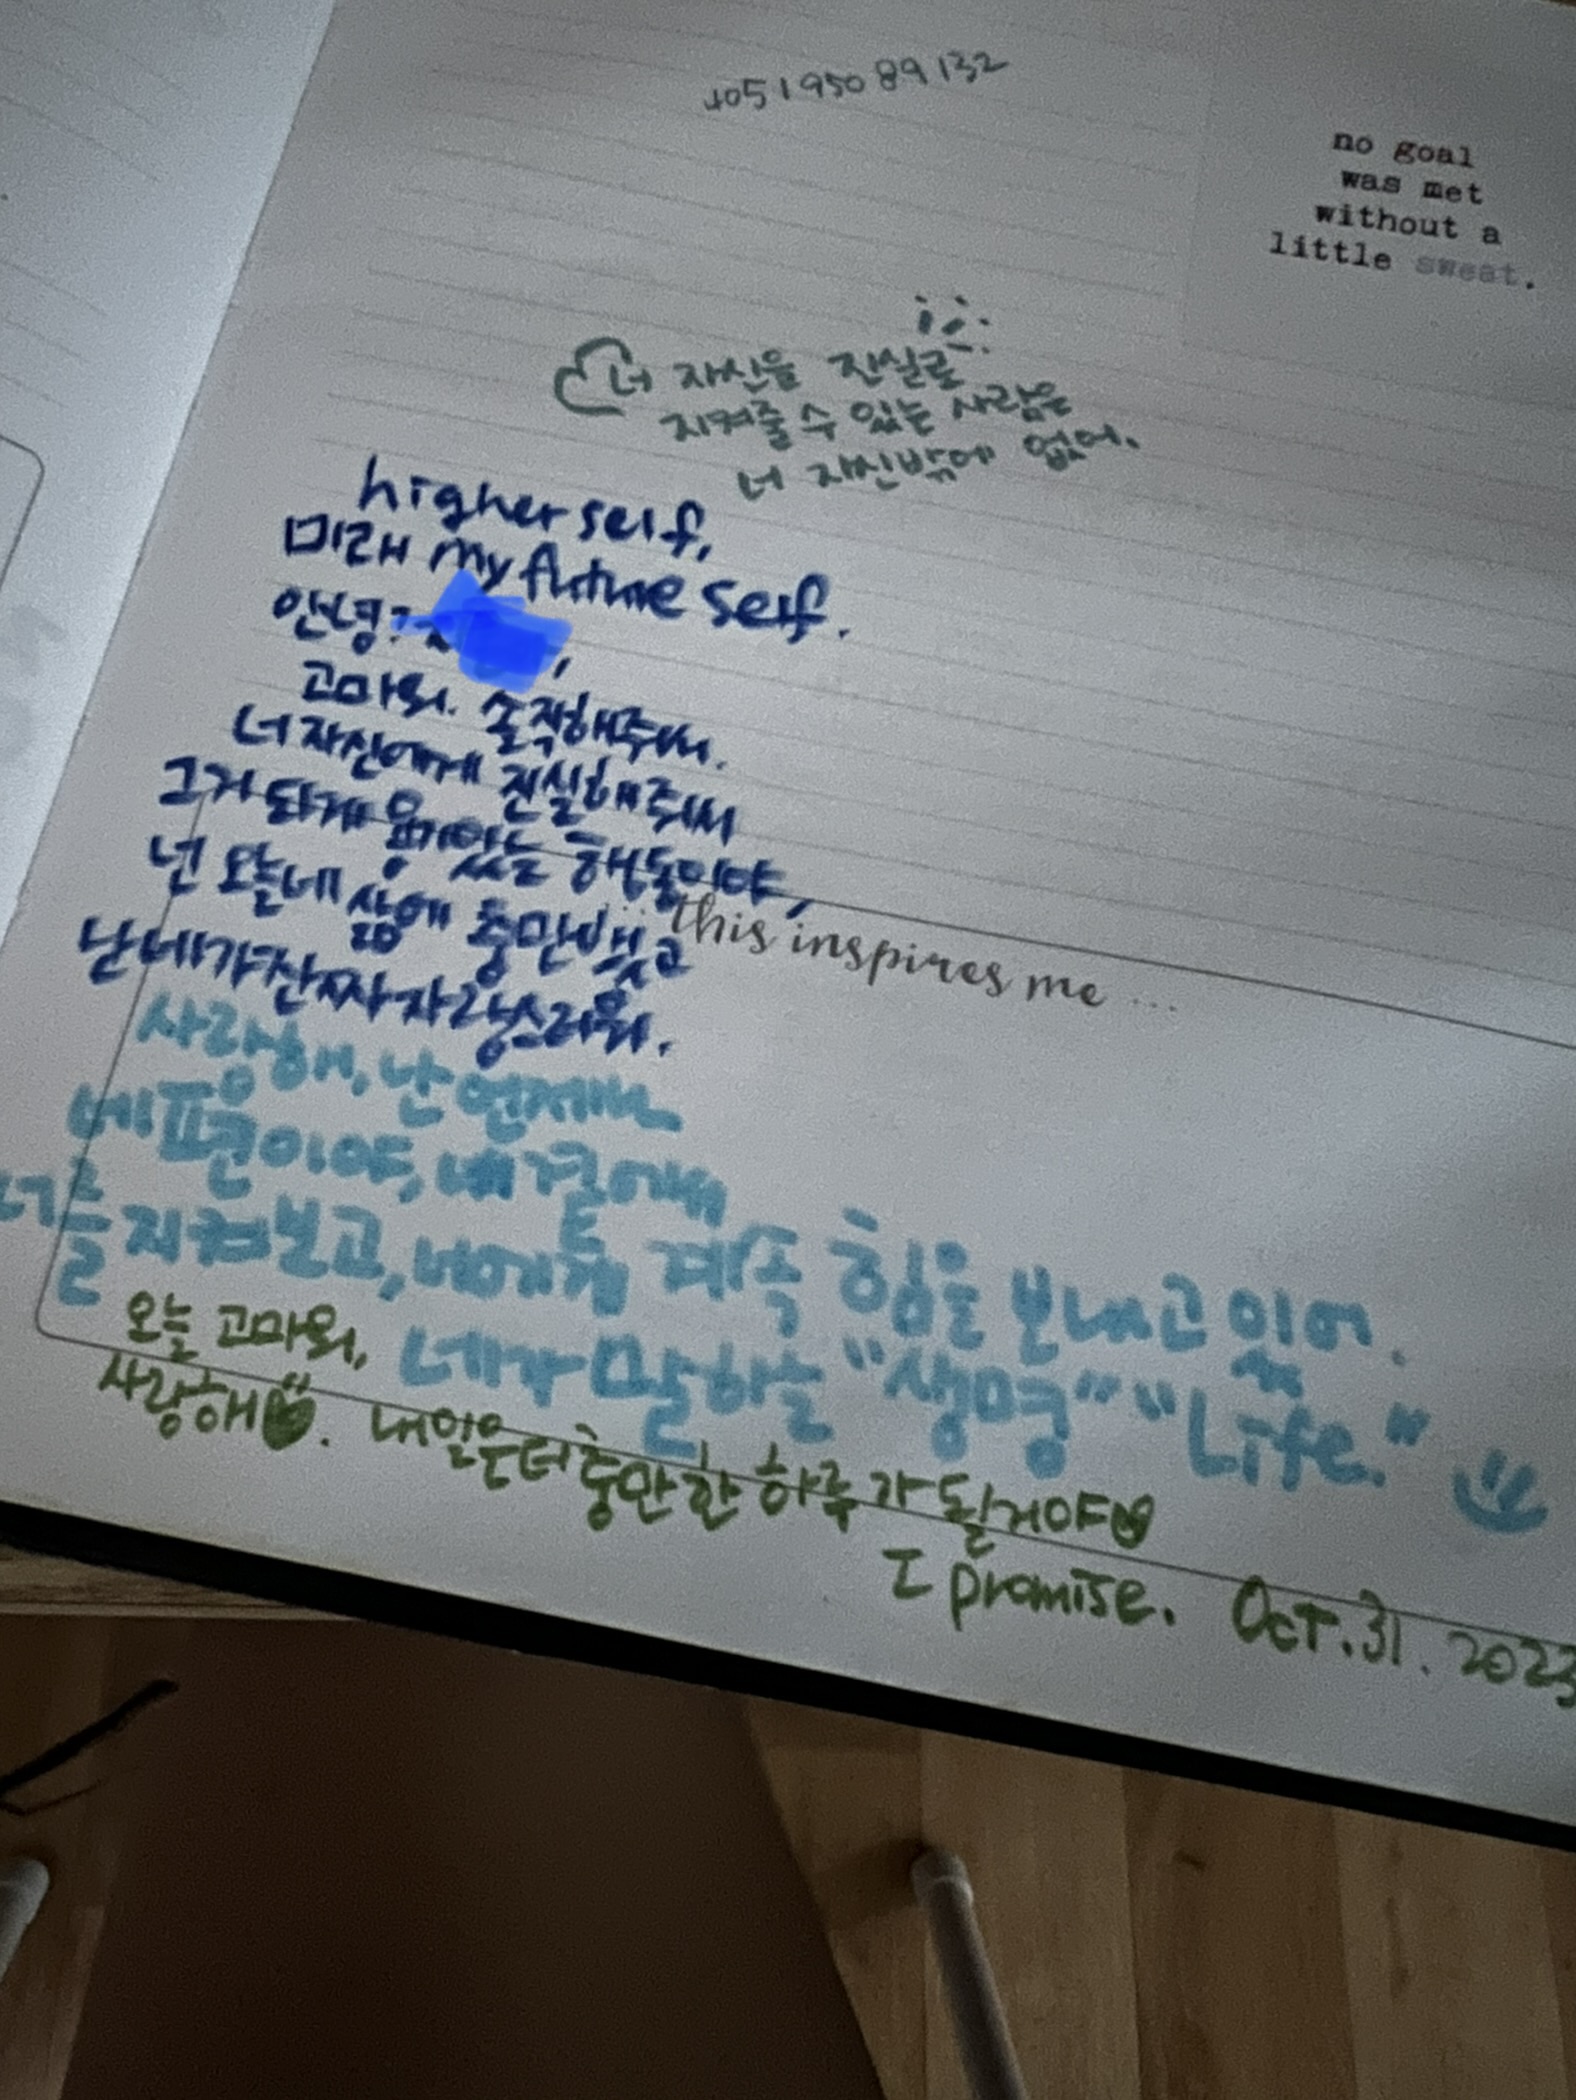 4051950 89 132
no goal
was met
without a
little sweat.
너 자신을 진실로
지켜줄 수 있는 사람은
너 자신밖에 없어.
higher self,
미래 my future self.
안녕?
고마워. 솔직해주셔서.
너 자신에게 진실해줘서
그거 되게 용기있는 행동이야,
넌 오늘 네 삶에 충만했고
난 네가 진짜 자랑스러워.
... this inspires me ...
사랑해, 난 언제나
네 편이야, 네 곁에서
너를 지켜보고, 너에게 계속 힘을 보내고 있어.
네가 말하는 "생명" "Life."
오늘 고마워,
사랑해. 내일부터 충만한 하루가 될거야
I promise. Oct. 31. 2023